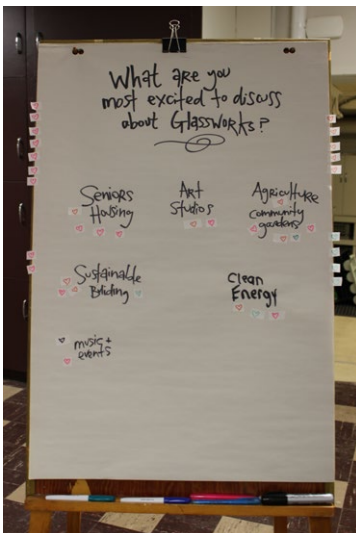 What are you
most excited to discuss
about Glassworks?
Seniors
Housing
Art
Studios
Agriculture
Community
gardens
Sustainable
Bilding
Clean
Energy
music +
events